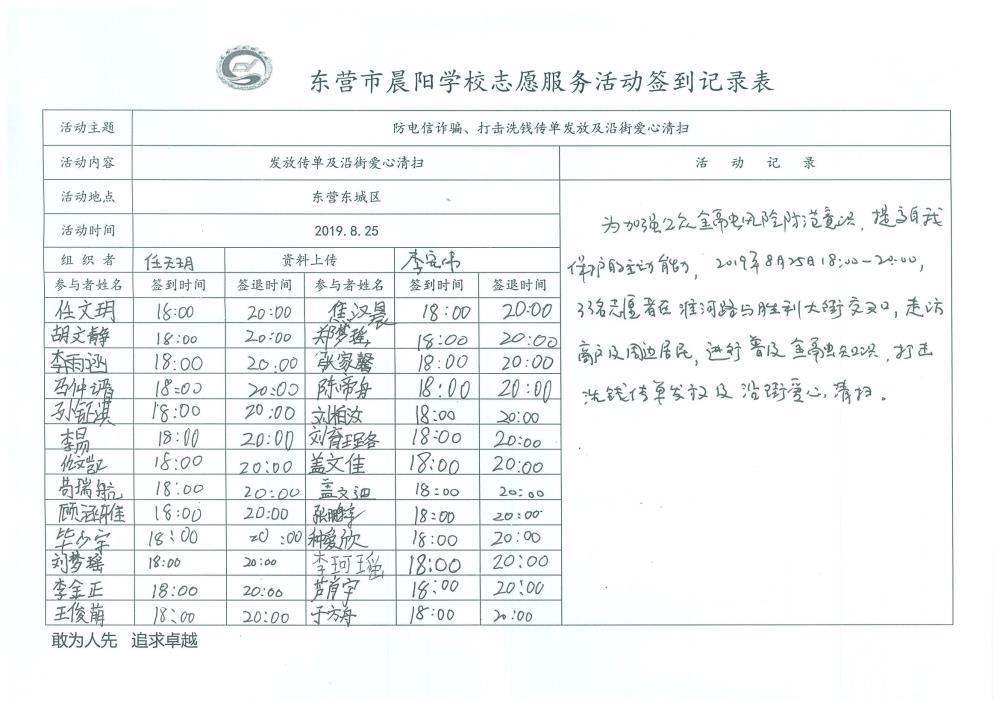 东营市晨阳学校志愿服务活动签到记录表
活动主题 防电信诈骗、打击洗钱传单发放及沿街爱心清扫
活动内容 发放传单及沿街爱心清扫 活动记录
活动地点 东营东城区
活动时间 2019.8.25
组织者 任文玥 资料上传
参与者姓名 签到时间 签退时间 参与者姓名 签到时间 签退时间
任文玥 18:00 20:00 焦汉晨 18:00 20:00
胡文静 18:00 20:00 郑梦瑶 18:00 20:00
李雨涵 18:00 20:00 张家馨 18:00 20:00
18:00 20:00 陈帝舟 18:00 20:00
孙钰淇 18:00 20:00 刘柏汶 18:00 20:00
李易 18:00 20:00 18:00 20:00
任文凯 18:00 20:00 盖文佳 18:00 20:00
苟瑞航 18:00 20:00 盖文迪 18:00 20:00
18:00 20:00 18:00 20:00
毕少宇 18:00 20:00 种爱欣 18:00 20:00
刘梦瑶 18:00 20:00 李珂瑶 18:00 20:00
李金正 18:00 20:00 芦肖宇 18:00 20:00
王俊萌 18:00 20:00 于方舟 18:00 20:00
为加强公众金融风险防范意识,提高自我
保护的主动能力,2019年8月25日18:00-20:00,
33名志愿者在淮河路与胜利大街交叉口,走访
商户及周边居民,进行普及金融知识,打击
洗钱传单发放及沿街爱心清扫。
敢为人先 追求卓越